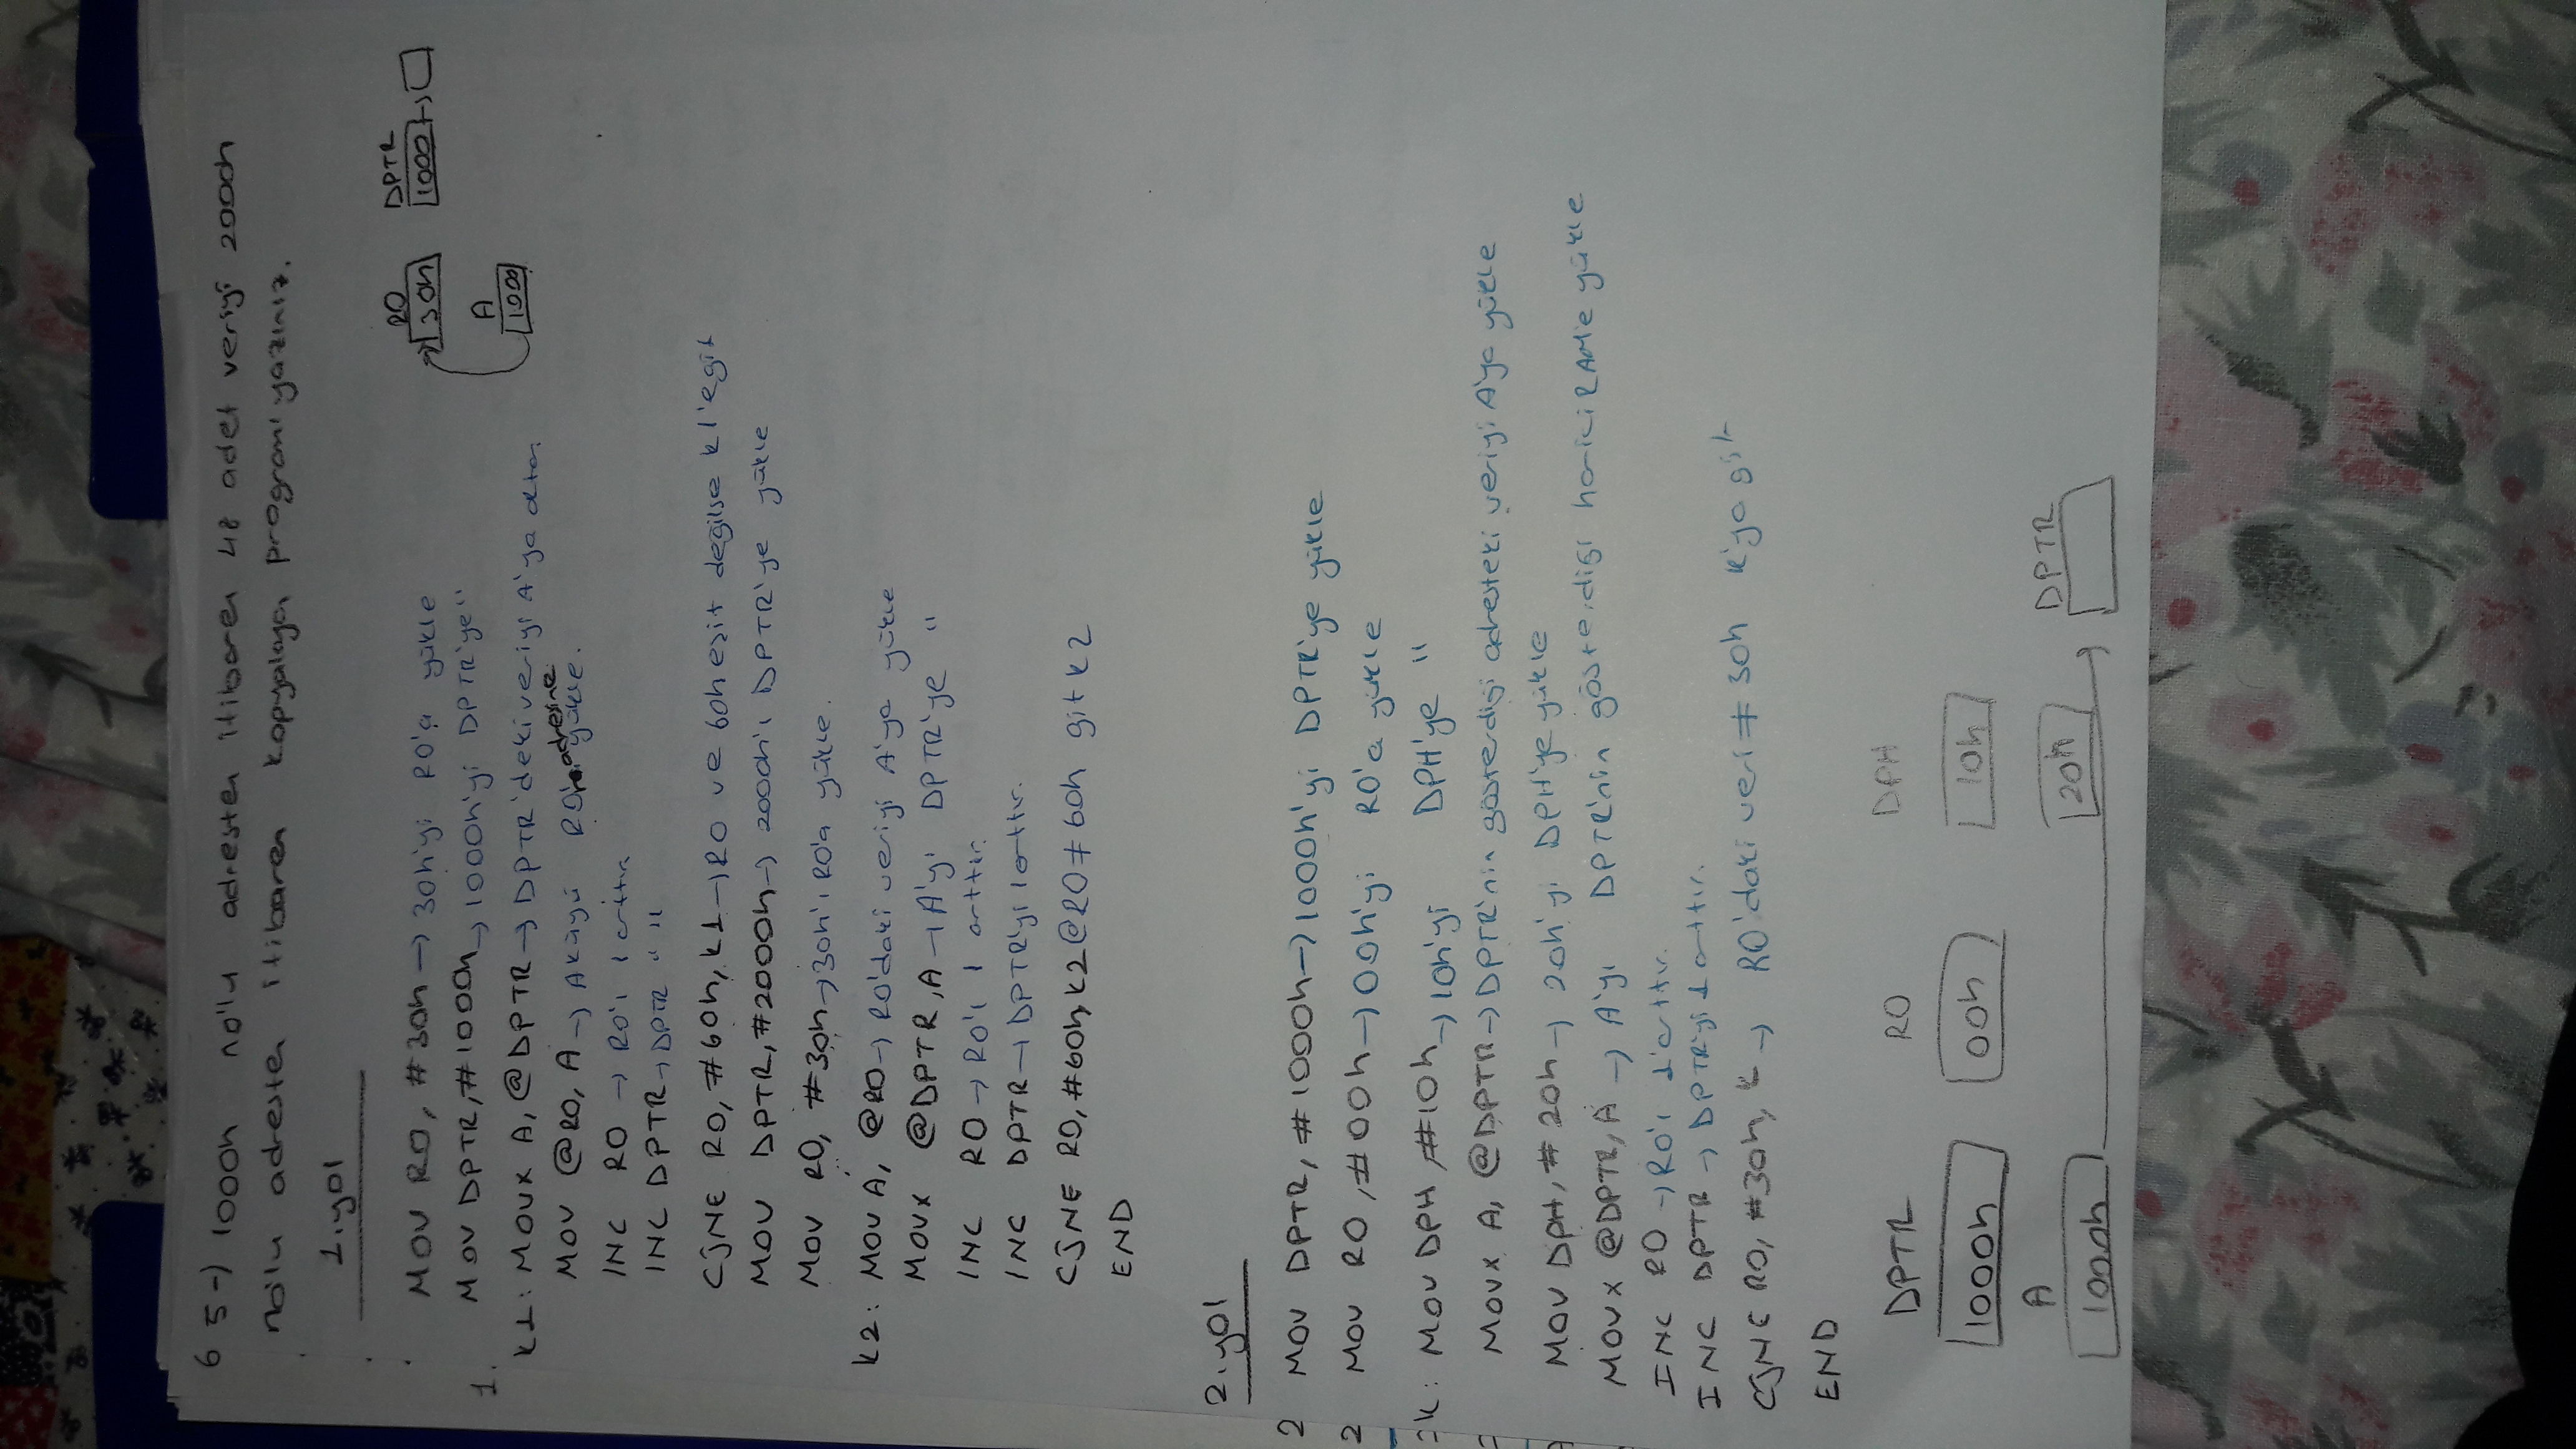 6 5-) 1000h no'lu adresten itibaren 48 adet veriyi 2000h
no'lu adresten itibaren kopyalayan programı yazınız.
1.yol
R0 DPTR
MOV R0, #30h → 30h'yi R0'a yükle
30h 1000
1. MOV DPTR, #1000h → 1000h'yi DPTR'ye "
A
1000
k1: MOVX A, @DPTR → DPTR'deki veriyi A'ya aktar.
MOV @R0, A → Aküyü R0'ın adresine yükle.
INC R0 → R0'ı 1 arttır
INC DPTR → DPTR " "
CJNE R0, #60h, k1 → R0 ve 60h eşit değilse k1'e git
MOV DPTR, #2000h → 2000h'ı DPTR'ye yükle
MOV R0, #30h → 30h'ı R0'a yükle.
k2: MOV A, @R0 → R0'daki veriyi A'ya yükle
MOVX @DPTR, A → A'yı DPTR'ye "
INC R0 → R0'ı 1 arttır.
INC DPTR → DPTR'yi 1 arttır.
CJNE R0, #60h, k2 @R0 ≠ 60h git k2
END
2.yol
2 MOV DPTR, #1000h → 1000h'yi DPTR'ye yükle
2 MOV R0, #00h → 00h'yi R0'a yükle
k: MOV DPH, #10h → 10h'yi DPH'ye "
MOVX A, @DPTR → DPTR'nin gösterdiği adresteki veriyi A'ya yükle
MOV DPH, #20h → 20h'yi DPH'ye yükle
MOVX @DPTR, A → A'yı DPTR'nin gösterdiği harici RAM'e yükle
INC R0 → R0'ı 1 arttır.
INC DPTR → DPTR'yi 1 arttır.
CJNE R0, #30h, k → R0'daki veri ≠ 30h k'ya git
END
DPTR R0 DPH
1000h 00h 10h
A DPTR
1000h 20h